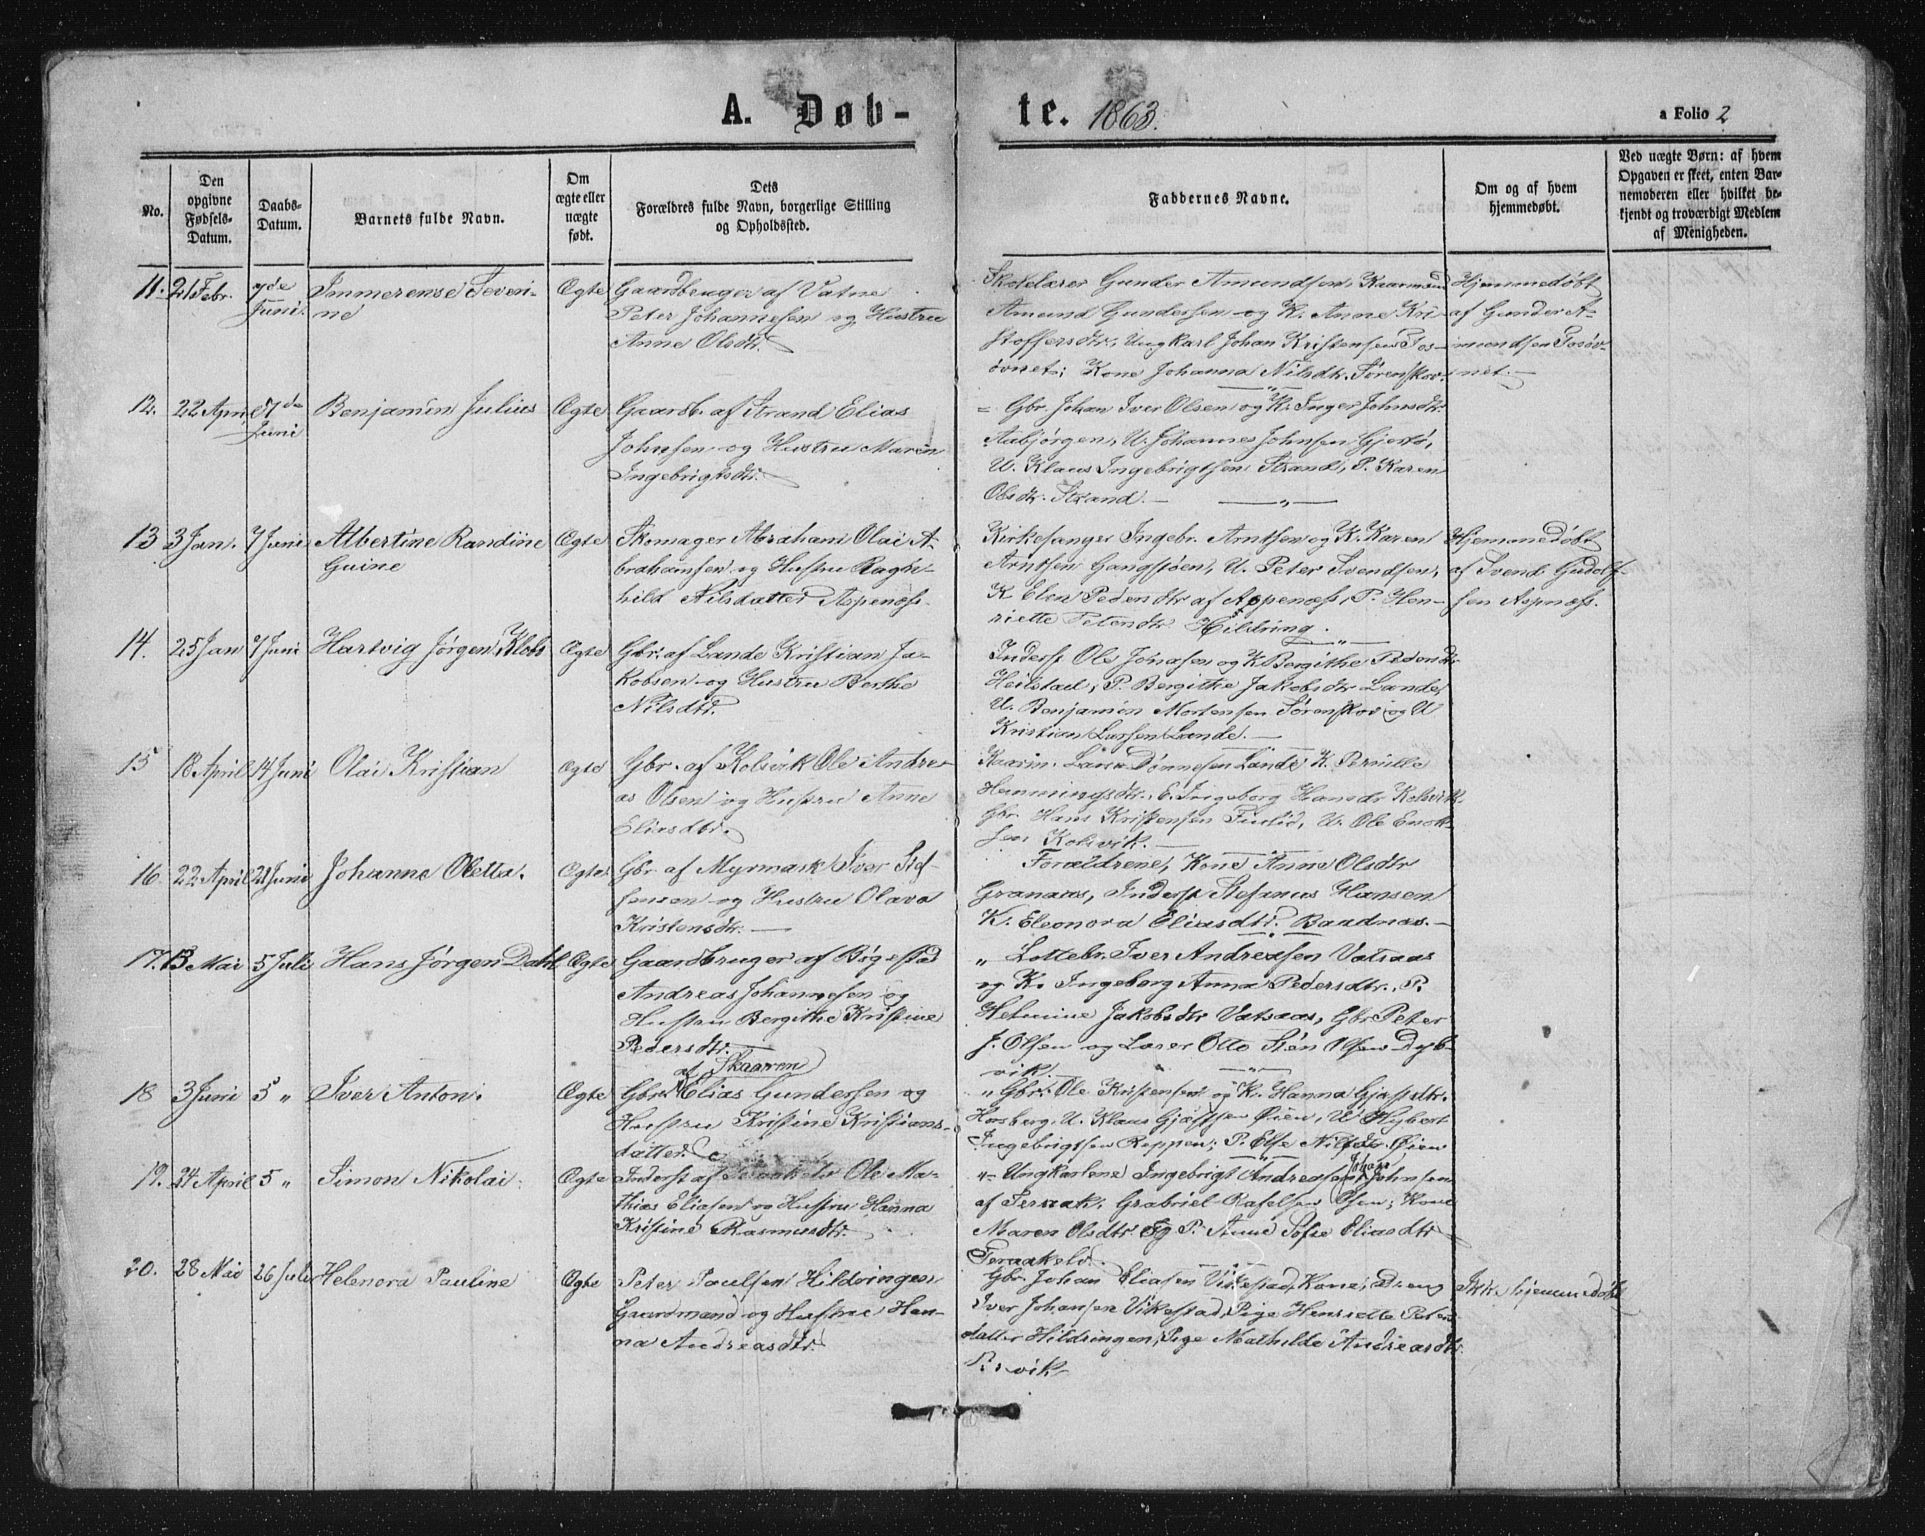 A. Døb-
te. 1863.
a Folio 2
No.
Den opgivne Fødsels-Datum.
Daabs-Datum.
Barnets fulde Navn.
Om ægte eller uægte født.
Dets
Forældres fulde Navn, borgerlige Stilling
og Opholdssted.
Faddernes Navne.
Om og af hvem
hjemmedøbt.
Ved uægte Børn: af hvem
Opgaven er skeet, enten Bar-
nemoderen eller hvilket be-
kjendt og troværdigt Medlem
af Menigheden.
11. 21 Febr. 7de Juni. Immerense Severi-
ne
Ægte
Gaardbruger af Vatne
Peter Johannesen og Hustru
Anne Olsdtr.
Skolelærer Gunder Amundsen, Kaarmand
Amund Gundersen og K. Anne Kri-
stoffersdtr. Ungkarl Johan Kristensen Tos-
øvnet; Kone Johanna Nilsdtr. Sørenskov.
Hjemmedøbt
af Gunder A-
mundsen Tosøv-
net.
12. 22 April 7de Juni Benjamin Julius
Ægte
Gaardb. af Strand Elias
Johnsen og Hustru Maren
Ingebrigtsdtr.
Gbr. Johan Iver Olsen og K. Inger Johnsdtr.
Aabjørgen, U. Johannes Johnsen Gjestø,
U. Klaus Ingebrigtsen Strand, P. Karen
Olsdtr. Strand.
13 3 Jan. 7 Juni Albertine Randine
Guine
Ægte
Skomager Abraham Olai A-
brahamsen og Hustru Ragn-
hild Nilsdatter Aspenæss.
Kirkesanger Ingebr. Arntsen og K. Karen
Arntsen Gangstøen, U. Peter Svendsen,
K Elen Pedersdtr af Aspenæss, P. Hen-
riette Petersdtr. Hildring.
Hjemmedøbt
af Svend Gudolf-
sen Aspnæss.
14. 25 Jan 7 Juni Hartvig Jørgen Klobs
Ægte
Gbr. af Lande Kristian Ja-
kobsen og Hustru Berthe
Nilsdtr.
Inderst Ole Jonasen og K Bergithe Pedersdtr
Heilstad, P. Bergithe Jakobsdtr Lande,
U. Benjamin Mortensen Sørenskov og U
Kristian Larsen Lande.
15 18 April 14 Juni Olai Kristian
Ægte
Gbr. af Kolsvik Ole Andre-
as Olsen og Hustru Anne
Eliasdtr.
Kaarm. Lars Dønnesen Lande K. Pernille
Henningsdtr. E. Ingeborg Hansdtr Kolsvik.
Gbr. Hans Kristensen Fuglid, U. Ole Enok-
sen Kolsvik.
16. 22 April 21 Juni Johanne Oletta.
Ægte
Gbr. af Myrmark Iver Stef-
fensen og Hustru Olava
Kristensdtr.
Forældrene, Kone Anne Olsdtr
Granaas, Inderst Stefanus Hansen
K. Eleonora Eliasdtr. Baadnæs.
17. 13 Mai 5 Juli Hans Jørgen Dahl
Ægte
Gaardbruger af Bøgestad
Andreas Johannesen og
Hustru Bergithe Kristine
Pedersdtr.
„ Lottebr. Iver Andreasen Vatsaas
og K. Ingeborg Anna Pedersdtr., P.
Helmine Jakobsdtr Vatsaas, Gbr Peter
J. Olsen og Lærer Otto Steen Olsen Dyb-
vik.
18 3 Juni 5 „ Iver Anton.
Ægte
af Skaaren
Gbr. Elias Gundersen og
Hustru Kristine Kristians-
datter.
„ Gbr. Ole Kristensen og K. Hanna Gjæstdtr.
Horsberg, U. Klaus Gjæstsen Øien, U Hybert
Ingebrigtsen Reppen; P. Else Nilsdtr. Øien
19. 24 April 5 „ Simon Nikolai.
Ægte
Inderst af Teraakelv Ole Ma-
thias Eliasen og Hustru Hanna
Kristine Rasmusdtr.
„ Ungkarlene Ingebrigt Andreasen, Johan Johnsen
af Teraak, Grabriel Rafelsen Øsen; Kone
Maren Olsdtr. og P. Anne Sofie Eliasdtr
Teraakelv.
20. 28 Mai 26 Juli Helenora Pauline
Ægte
Peter Paulsen Hildringen
Gaardmand og Hustru Han-
na Andreasdtr.
Gbr. Johan Eliasen Vikestad, Kone, Dreng
Iver Johansen Vikestad, Pige Henriette Peters-
datter Hildringen, Pige Mathilde Andreasdtr.
vik
Ikke hjemmedøbt